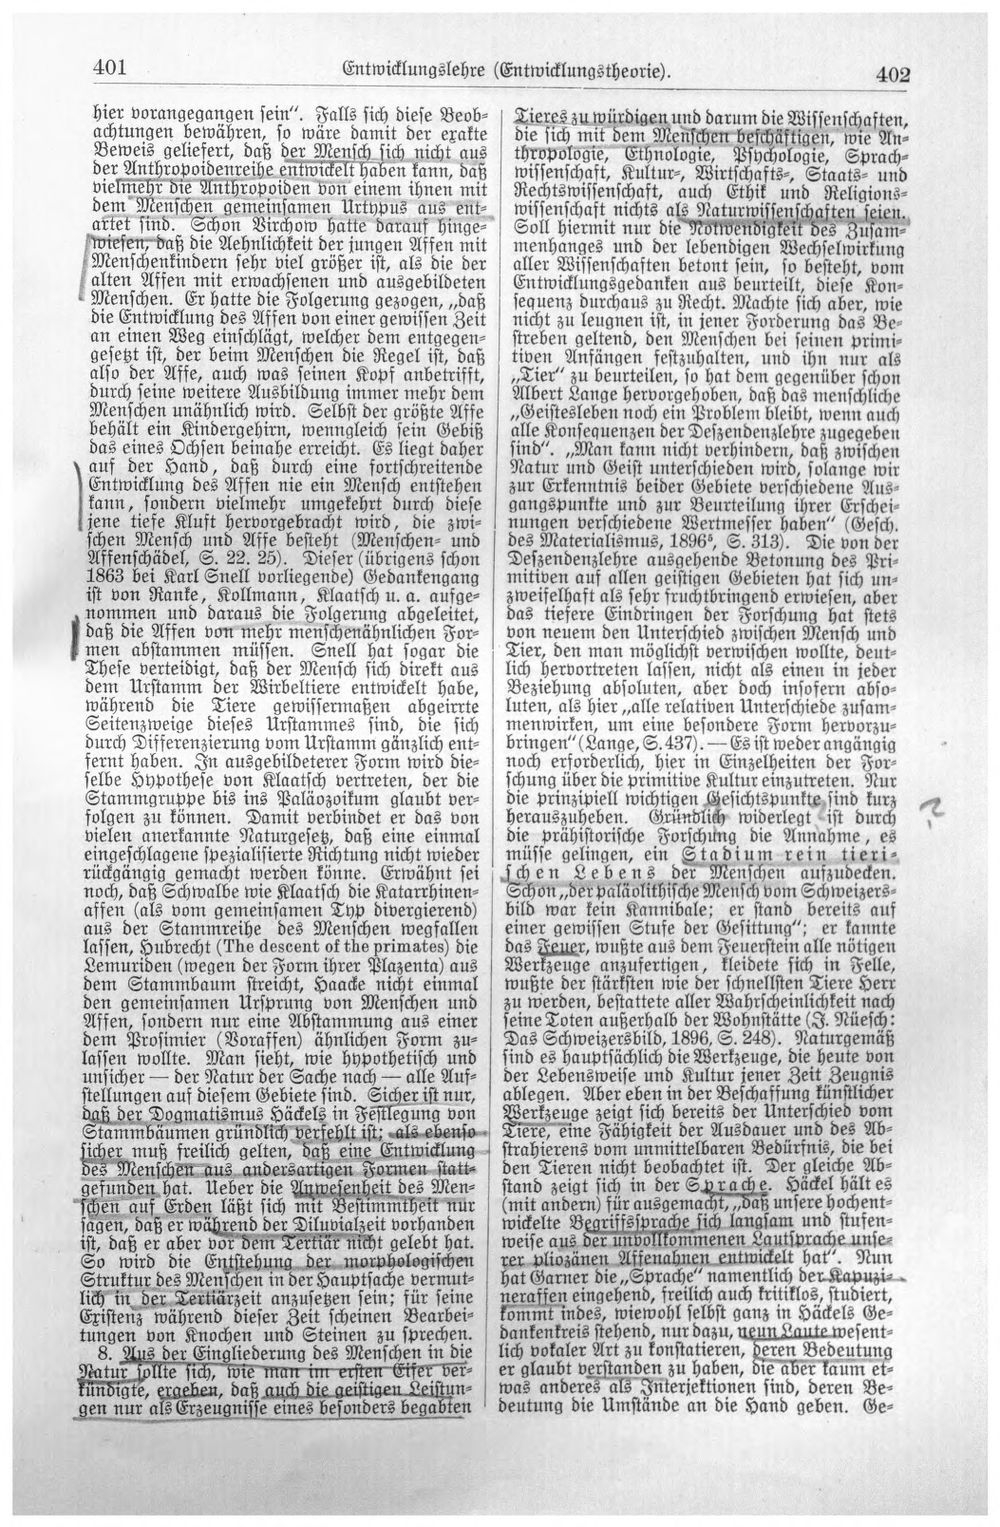 401
Entwicklungslehre (Entwicklungstheorie).
402
hier vorangegangen sein“. Falls sich diese Beob-
achtungen bewähren, so wäre damit der exakte
Beweis geliefert, daß der Mensch sich nicht aus
der Anthropoidenreihe entwickelt haben kann, daß
vielmehr die Anthropoiden von einem ihnen mit
dem Menschen gemeinsamen Urtypus aus ent-
artet sind. Schon Virchow hatte darauf hinge-
wiesen, daß die Aehnlichkeit der jungen Affen mit
Menschenkindern sehr viel größer ist, als die der
alten Affen mit erwachsenen und ausgebildeten
Menschen. Er hatte die Folgerung gezogen, „daß
die Entwicklung des Affen von einer gewissen Zeit
an einen Weg einschlägt, welcher dem entgegen-
gesetzt ist, der beim Menschen die Regel ist, daß
also der Affe, auch was seinen Kopf anbetrifft,
durch seine weitere Ausbildung immer mehr dem
Menschen unähnlich wird. Selbst der größte Affe
behält ein Kindergehirn, wenngleich sein Gebiß
das eines Ochsen beinahe erreicht. Es liegt daher
auf der Hand, daß durch eine fortschreitende
Entwicklung des Affen nie ein Mensch entstehen
kann, sondern vielmehr umgekehrt durch diese
jene tiefe Kluft hervorgebracht wird, die zwi-
schen Mensch und Affe besteht (Menschen- und
Affenschädel, S. 22. 25). Dieser (übrigens schon
1863 bei Karl Snell vorliegende) Gedankengang
ist von Ranke, Kollmann, Klaatsch u. a. aufge-
nommen und daraus die Folgerung abgeleitet,
daß die Affen von mehr menschenähnlichen For-
men abstammen müssen. Snell hat sogar die
These verteidigt, daß der Mensch sich direkt aus
dem Urstamm der Wirbeltiere entwickelt habe,
während die Tiere gewissermaßen abgeirrte
Seitenzweige dieses Urstammes sind, die sich
durch Differenzierung vom Urstamm gänzlich ent-
fernt haben. In ausgebildeterer Form wird die-
selbe Hypothese von Klaatsch vertreten, der die
Stammgruppe bis ins Paläozoikum glaubt ver-
folgen zu können. Damit verbindet er das von
vielen anerkannte Naturgesetz, daß eine einmal
eingeschlagene spezialisierte Richtung nicht wieder
rückgängig gemacht werden könne. Erwähnt sei
noch, daß Schwalbe wie Klaatsch die Katarrhinen-
affen (als vom gemeinsamen Typ divergierend)
aus der Stammreihe des Menschen wegfallen
lassen, Hubrecht (The descent of the primates) die
Lemuriden (wegen der Form ihrer Plazenta) aus
dem Stammbaum streicht, Haacke nicht einmal
den gemeinsamen Ursprung von Menschen und
Affen, sondern nur eine Abstammung aus einer
dem Prosimier (Voraffen) ähnlichen Form zu-
lassen wollte. Man sieht, wie hypothetisch und
unsicher — der Natur der Sache nach — alle Auf-
stellungen auf diesem Gebiete sind. Sicher ist nur,
daß der Dogmatismus Häckels in Festlegung von
Stammbäumen gründlich verfehlt ist; als ebenso
sicher muß freilich gelten, daß eine Entwicklung
des Menschen aus andersartigen Formen statt-
gefunden hat. Ueber die Anwesenheit des Men-
schen auf Erden läßt sich mit Bestimmtheit nur
sagen, daß er während der Diluvialzeit vorhanden
ist, daß er aber vor dem Tertiär nicht gelebt hat.
So wird die Entstehung der morphologischen
Struktur des Menschen in der Hauptsache vermut-
lich in der Tertiärzeit anzusetzen sein; für seine
Existenz während dieser Zeit scheinen Bearbei-
tungen von Knochen und Steinen zu sprechen.
8. Aus der Eingliederung des Menschen in die
Natur sollte sich, wie man im ersten Eifer ver-
kündigte, ergeben, daß auch die geistigen Leistun-
gen nur als Erzeugnisse eines besonders begabten
Tieres zu würdigen und darum die Wissenschaften,
die sich mit dem Menschen beschäftigen, wie An-
thropologie, Ethnologie, Psychologie, Sprach-
wissenschaft, Kultur-, Wirtschafts-, Staats- und
Rechtswissenschaft, auch Ethik und Religions-
wissenschaft nichts als Naturwissenschaften seien.
Soll hiermit nur die Notwendigkeit des Zusam-
menhanges und der lebendigen Wechselwirkung
aller Wissenschaften betont sein, so besteht, vom
Entwicklungsgedanken aus beurteilt, diese Kon-
sequenz durchaus zu Recht. Machte sich aber, wie
nicht zu leugnen ist, in jener Forderung das Be-
streben geltend, den Menschen bei seinen primi-
tiven Anfängen festzuhalten, und ihn nur als
„Tier“ zu beurteilen, so hat dem gegenüber schon
Albert Lange hervorgehoben, daß das menschliche
„Geistesleben noch ein Problem bleibt, wenn auch
alle Konsequenzen der Deszendenzlehre zugegeben
sind“. „Man kann nicht verhindern, daß zwischen
Natur und Geist unterschieden wird, solange wir
zur Erkenntnis beider Gebiete verschiedene Aus-
gangspunkte und zur Beurteilung ihrer Erschei-
nungen verschiedene Wertmesser haben“ (Gesch.
des Materialismus, 1896⁵, S. 313). Die von der
Deszendenzlehre ausgehende Betonung des Pri-
mitiven auf allen geistigen Gebieten hat sich un-
zweifelhaft als sehr fruchtbringend erwiesen, aber
das tiefere Eindringen der Forschung hat stets
von neuem den Unterschied zwischen Mensch und
Tier, den man möglichst verwischen wollte, deut-
lich hervortreten lassen, nicht als einen in jeder
Beziehung absoluten, aber doch insofern abso-
luten, als hier „alle relativen Unterschiede zusam-
menwirken, um eine besondere Form hervorzu-
bringen“ (Lange, S. 437). — Es ist weder angängig
noch erforderlich, hier in Einzelheiten der For-
schung über die primitive Kultur einzutreten. Nur
die prinzipiell wichtigen Gesichtspunkte sind kurz
herauszuheben. Gründlich widerlegt ist durch
die prähistorische Forschung die Annahme, es
müsse gelingen, ein Stadium rein tieri-
schen Lebens der Menschen aufzudecken.
Schon „der paläolithische Mensch vom Schweizers-
bild war kein Kannibale; er stand bereits auf
einer gewissen Stufe der Gesittung“; er kannte
das Feuer, wußte aus dem Feuerstein alle nötigen
Werkzeuge anzufertigen, kleidete sich in Felle,
wußte der stärksten wie der schnellsten Tiere Herr
zu werden, bestattete aller Wahrscheinlichkeit nach
seine Toten außerhalb der Wohnstätte (J. Nüesch:
Das Schweizersbild, 1896, S. 248). Naturgemäß
sind es hauptsächlich die Werkzeuge, die heute von
der Lebensweise und Kultur jener Zeit Zeugnis
ablegen. Aber eben in der Beschaffung künstlicher
Werkzeuge zeigt sich bereits der Unterschied vom
Tiere, eine Fähigkeit der Ausdauer und des Ab-
strahierens vom unmittelbaren Bedürfnis, die bei
den Tieren nicht beobachtet ist. Der gleiche Ab-
stand zeigt sich in der Sprache. Häckel hält es
(mit andern) für ausgemacht, „daß unsere hochent-
wickelte Begriffssprache sich langsam und stufen-
weise aus der unvollkommenen Lautsprache unse-
rer pliozänen Affenahnen entwickelt hat“. Nun
hat Garner die „Sprache“ namentlich der Kapuzi-
neraffen eingehend, freilich auch kritiklos, studiert,
kommt indes, wiewohl selbst ganz in Häckels Ge-
dankenkreis stehend, nur dazu, neun Laute wesent-
lich vokaler Art zu konstatieren, deren Bedeutung
er glaubt verstanden zu haben, die aber kaum et-
was anderes als Interjektionen sind, deren Be-
deutung die Umstände an die Hand geben. Ge-
?